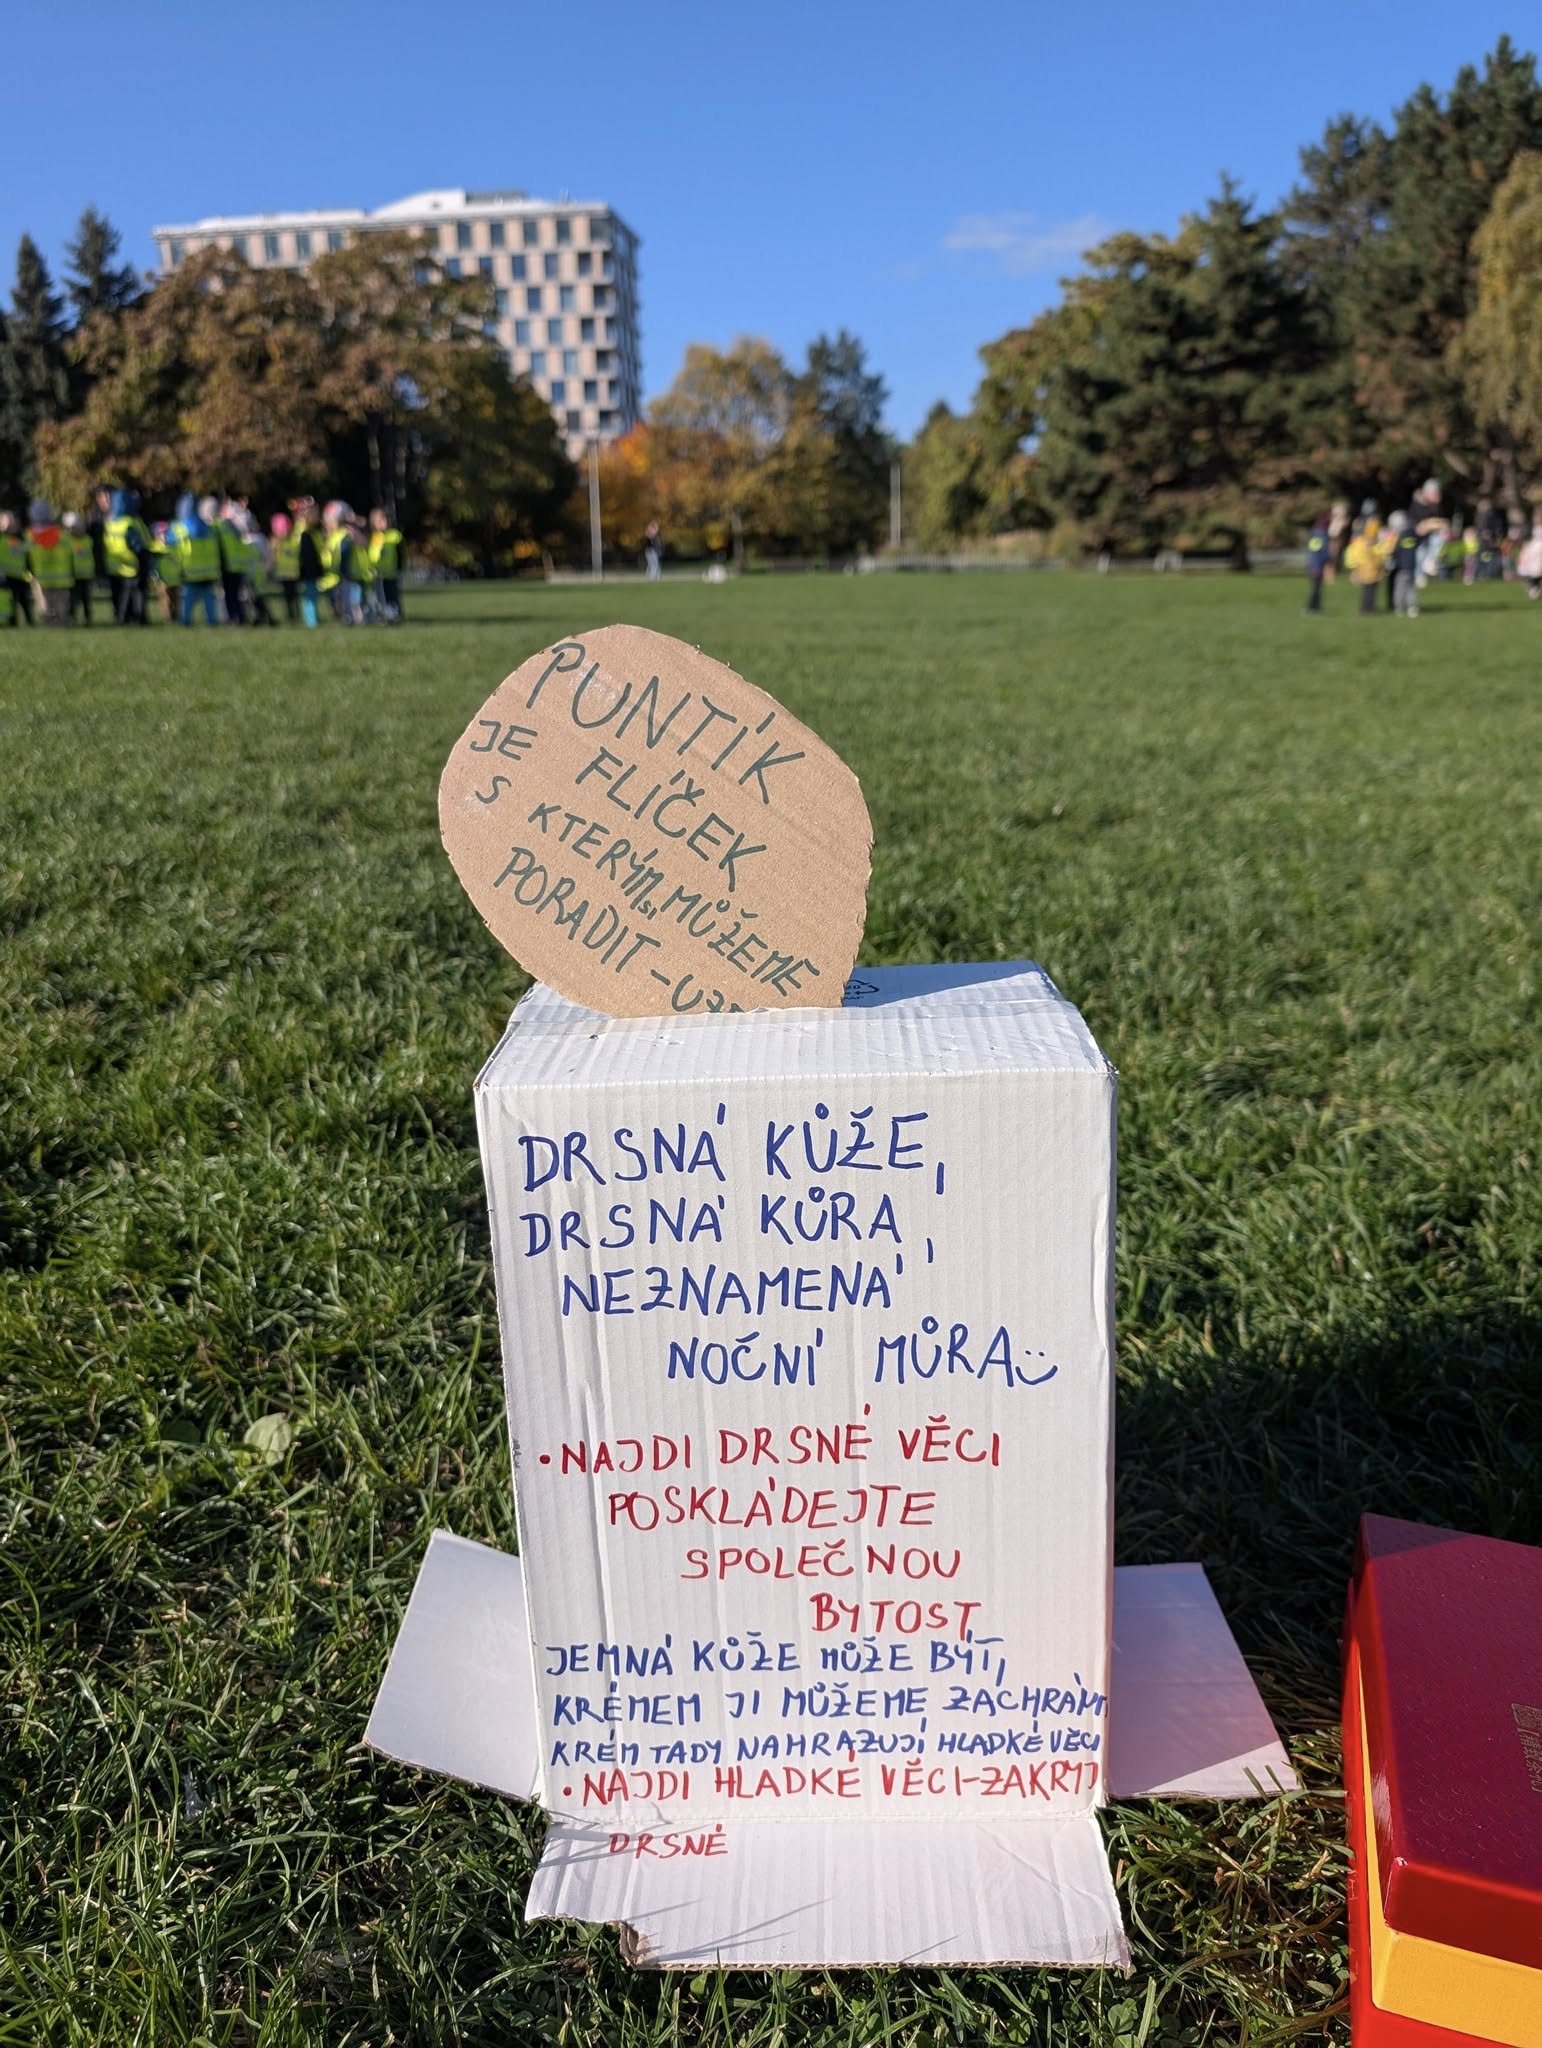 PUNTÍK
JE FLÍČEK
S KTERÝM SI MŮŽEME
PORADIT -
DRSNÁ KŮŽE,
DRSNÁ KŮRA,
NEZNAMENÁ
NOČNÍ MŮRA
• NAJDI DRSNÉ VĚCI
POSKLÁDEJTE
SPOLEČNOU
BYTOST
JEMNÁ KŮŽE MŮŽE BÝT,
KRÉMEM JI MŮŽEME
KRÉM TADY NAHRAZUJÍ HLADKÉ VĚCI
• NAJDI HLADKÉ VĚCI-ZAKRYJ
DRSNÉ